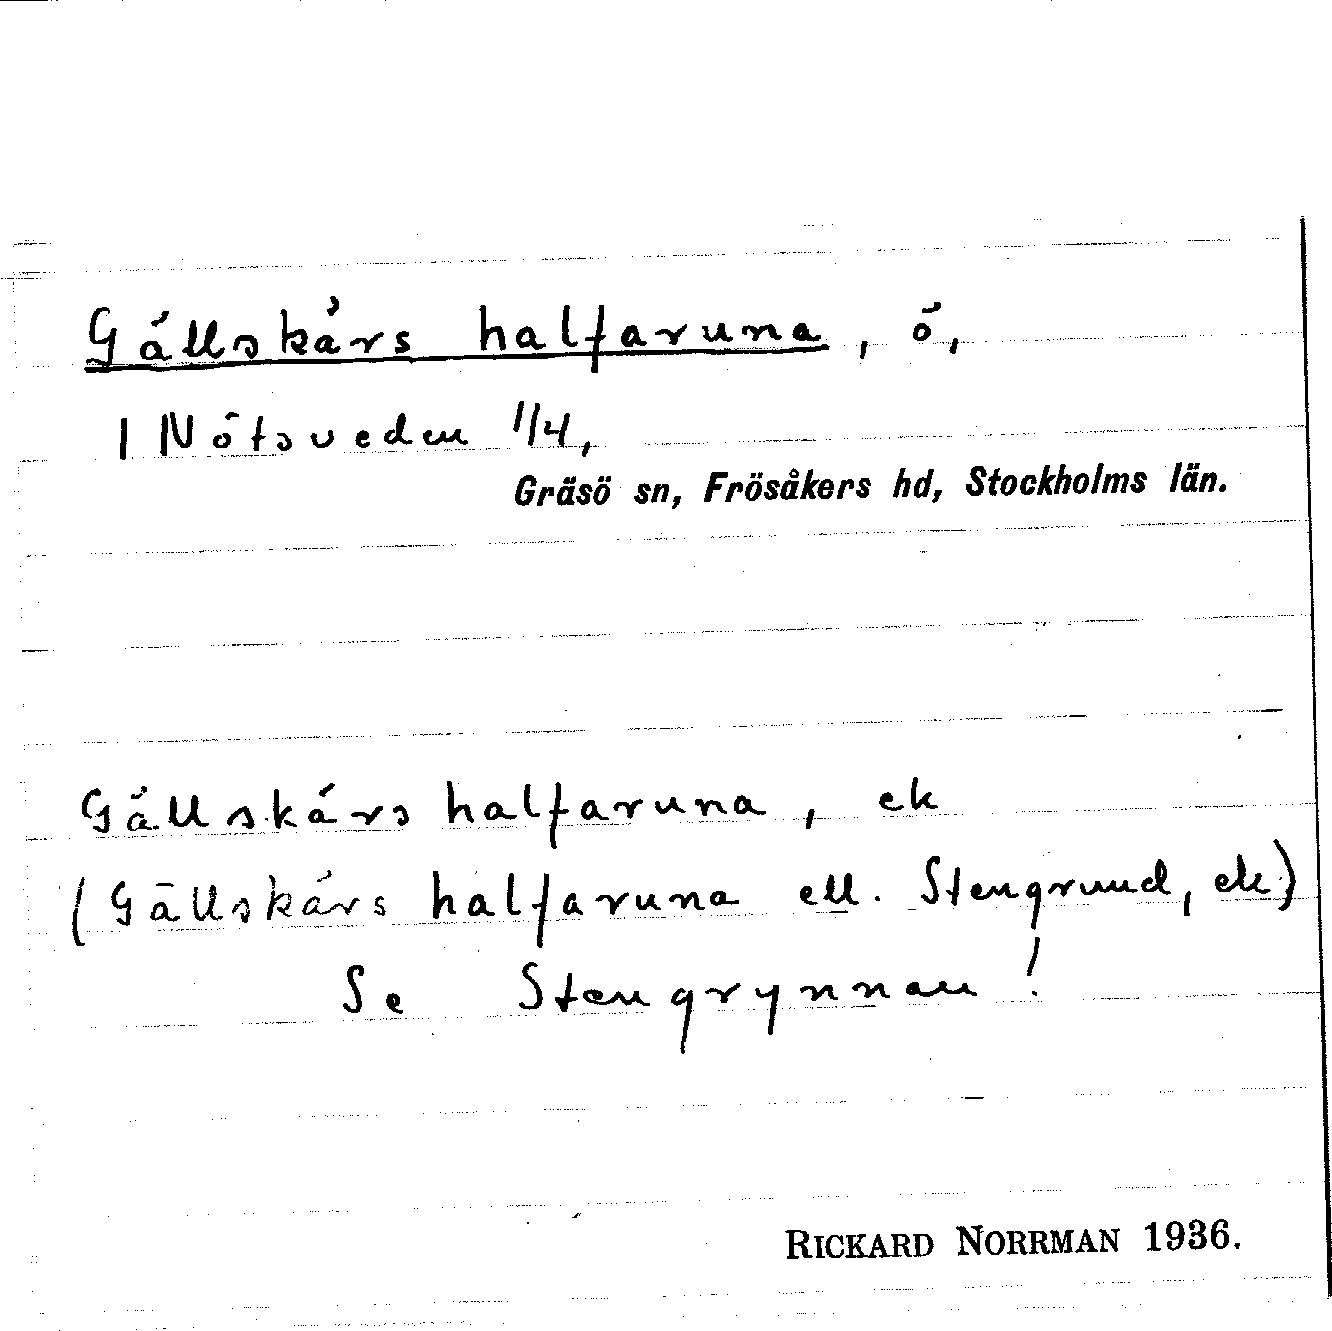 Gällskärs halfaruna, ö,
1 Nötsveden 1/4,
Gräsö sn, Frösåkers hd, Stockholms län.
Gällskärs halfaruna, ek
(Gällskärs halfaruna ell. Stengrund, ek)
Se Stengrynnan!
RICKARD NORRMAN 1936.